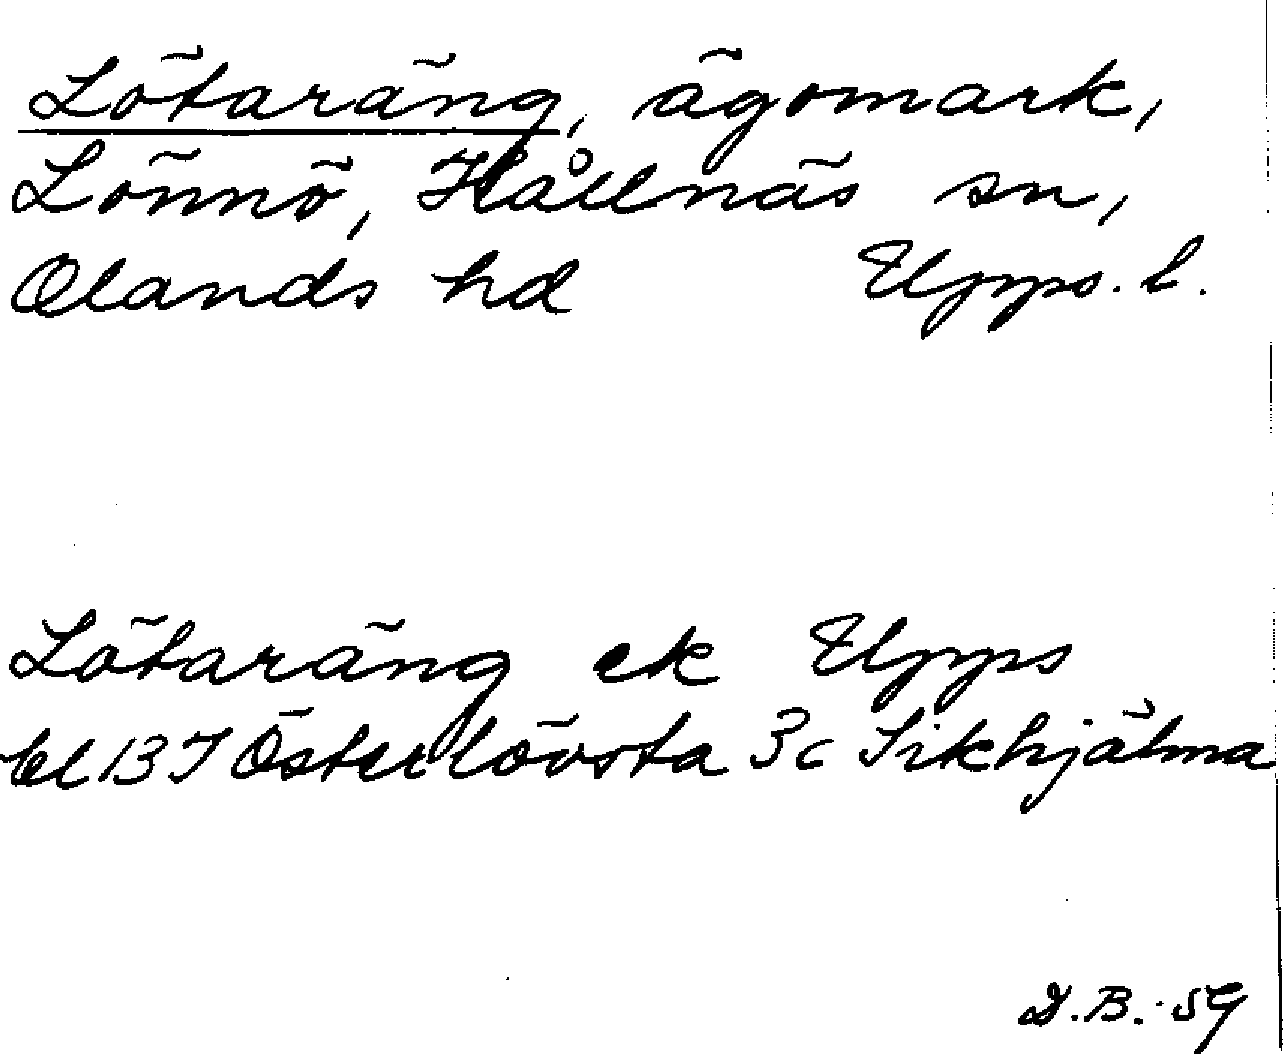 Lötaräng, ägomark,
Lönnö, Hållnäs sn,
Olands hd Upps. l.
Lötaräng ek Upps
bl 137 Österlövsta 3c Sikhjälma
D.B. -59